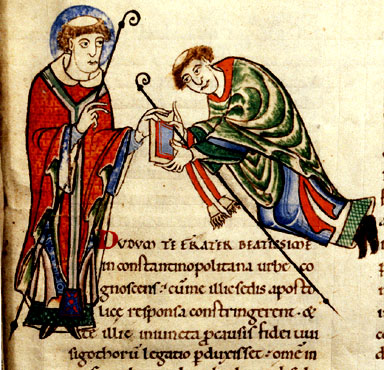 DVDVM TE FRATER BEATISSIME
in constantinopolitana urbe co
gnoscens · cū me illic sedis aposto
lice responsa constringerent · &
te illic iniuncta ꝓ causis fidei uui
sigothorū legatio ꝑduxisset · om̅e in